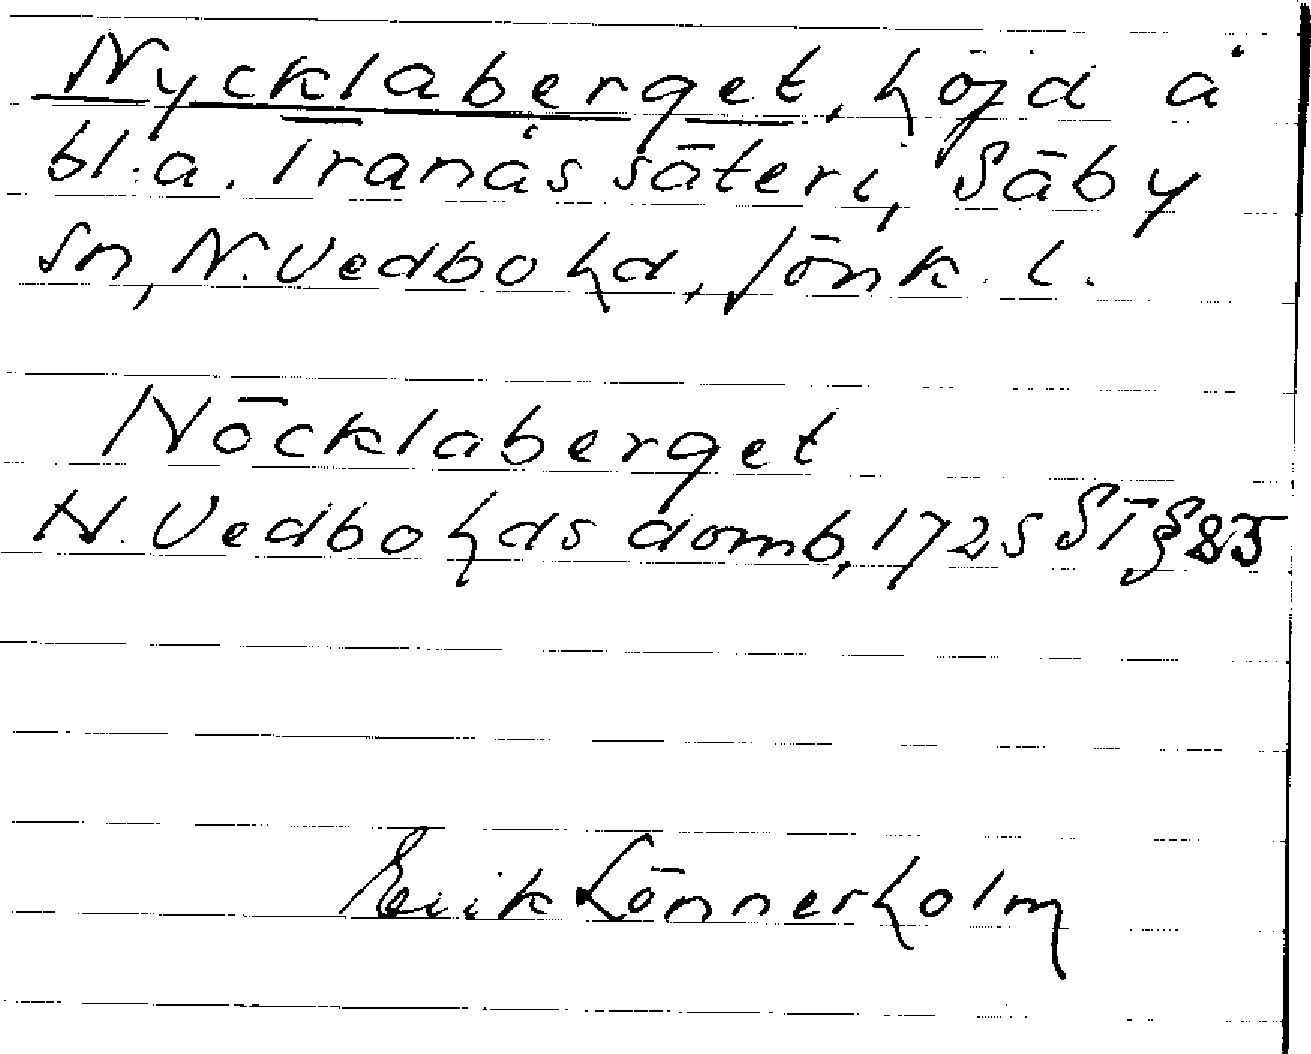 Nycklaberget, höjd å
bl.a. Tranås säteri, Säby
sn, N. Vedbo hd, Jönk. l.
Nöcklaberget
N. Vedbo hds domb, 1725 ST § 25
Erik Lönnerholm